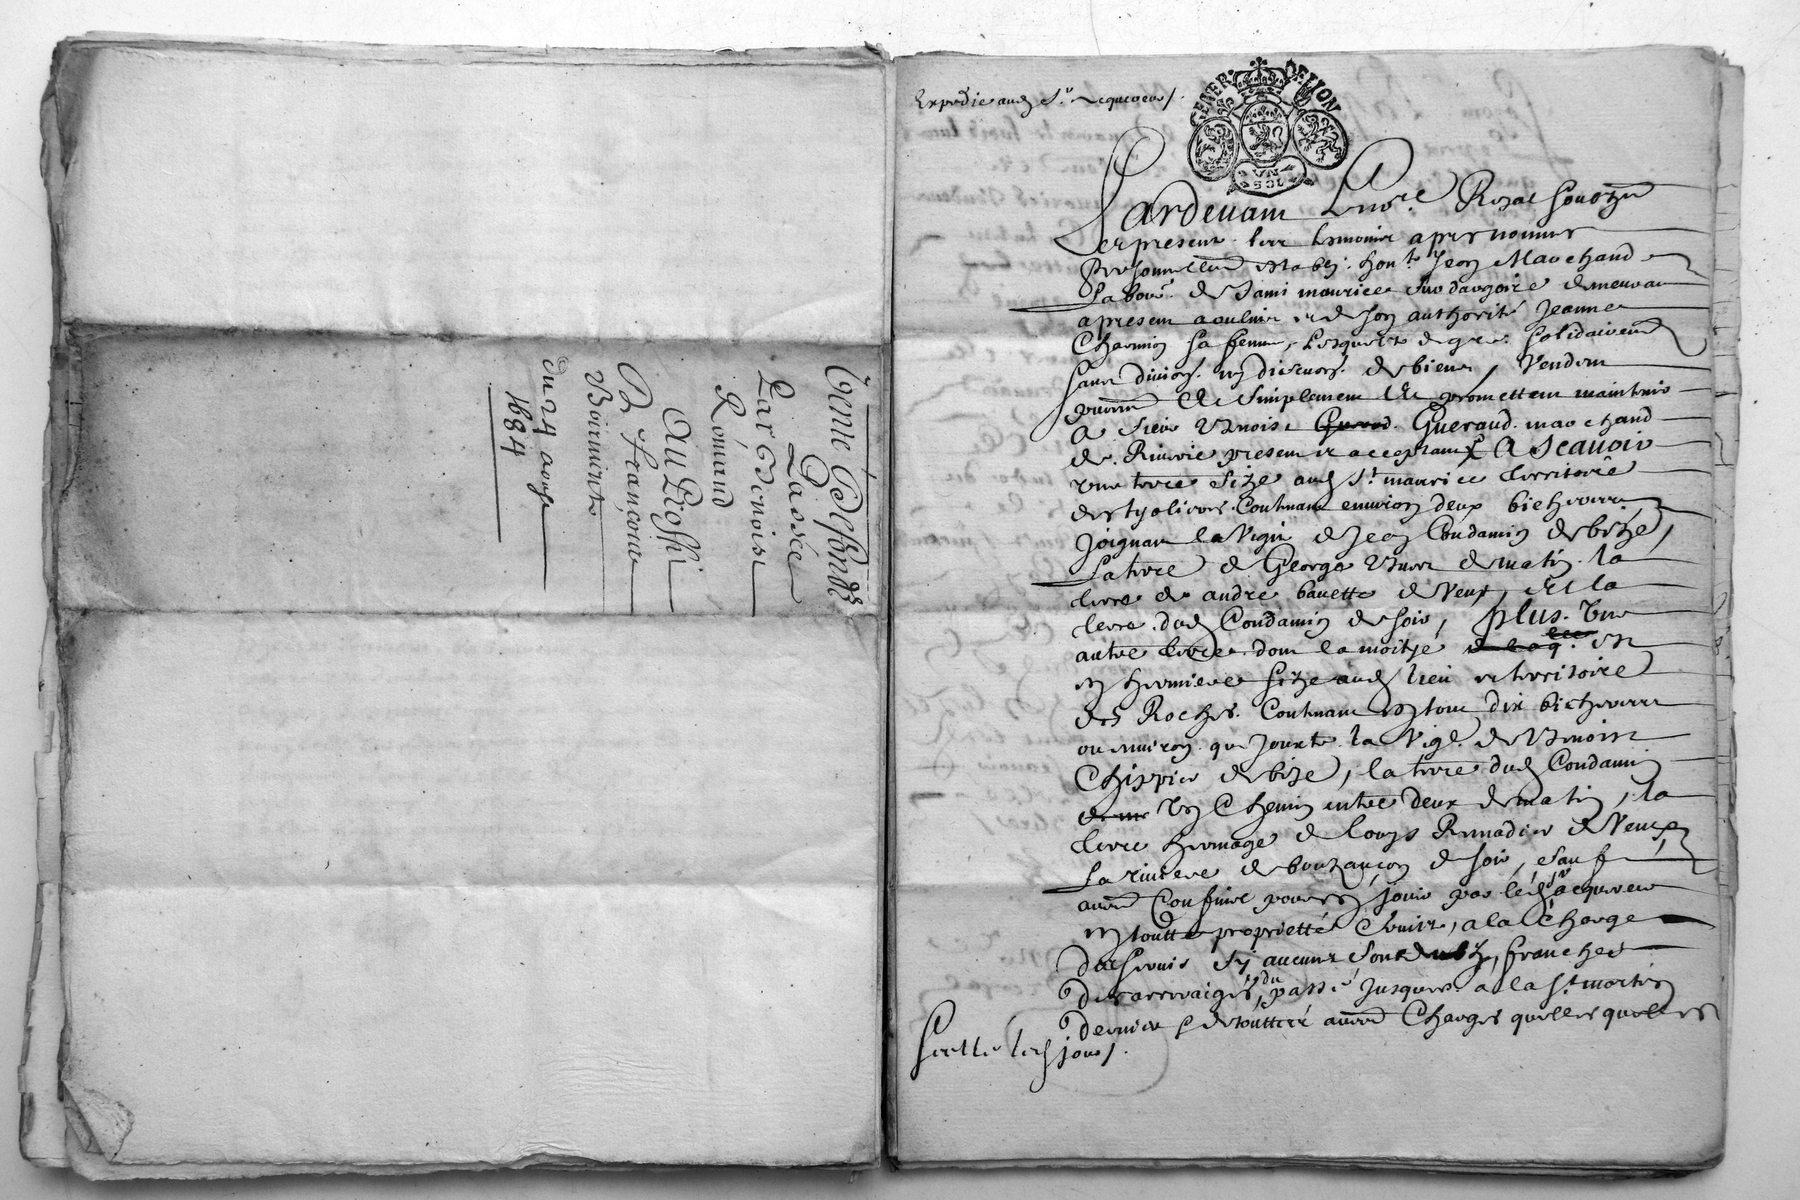 Vente &
Passée
Par Benoist
Romand
Au Proffit
De Francois
Voirin
du 24 aoust
1684
Expedie aud Sr acquereur
GENER. DE LYON
VN
SOL
Pardevant Royal
et presents
Personnellemt establi hont Jean Marchand
Labour de Saint maurice sur dargoire demeurant
a present a et de son authorité Jeanne
sa femme, Lesquels de gré solidairement
sans division ny discution de biens, Vendent
puremt & simplement & promettent maintenir
A Sieur Benoist Gueraud marchand
de Riverie present et acceptant A Scauoir
vne terre Size aud St maurice territoire
Contenant environ deux bicherées
Joignant la Vigne de Jean Condamin de bize,
La terre de George de matin la
terre de andré de Vent, Et la
terre dud Condamin de soir, plus Vne
autre terre dont la moitié est
en hermiere Size aud lieu et territoire
des Roches Contenant en tout dix bicherées
ou environ que Jouxte la Vigne de Benoist
Chippier de bize, la terre dud Condamin
Vn Chemin entre deux de matin, la
terre hermage de Louys de Vent,
La riviere de bouzançon de soir, sauf
autres Confins pour en jouir par led Sr acquereur
en toutte proprietté a la Charge
des servis sy aucuns sont deubz, franches
des arrerages du passé Jusques a la St martin
dernier & de touttes autres Charges quelles quelles
Scellé led jour